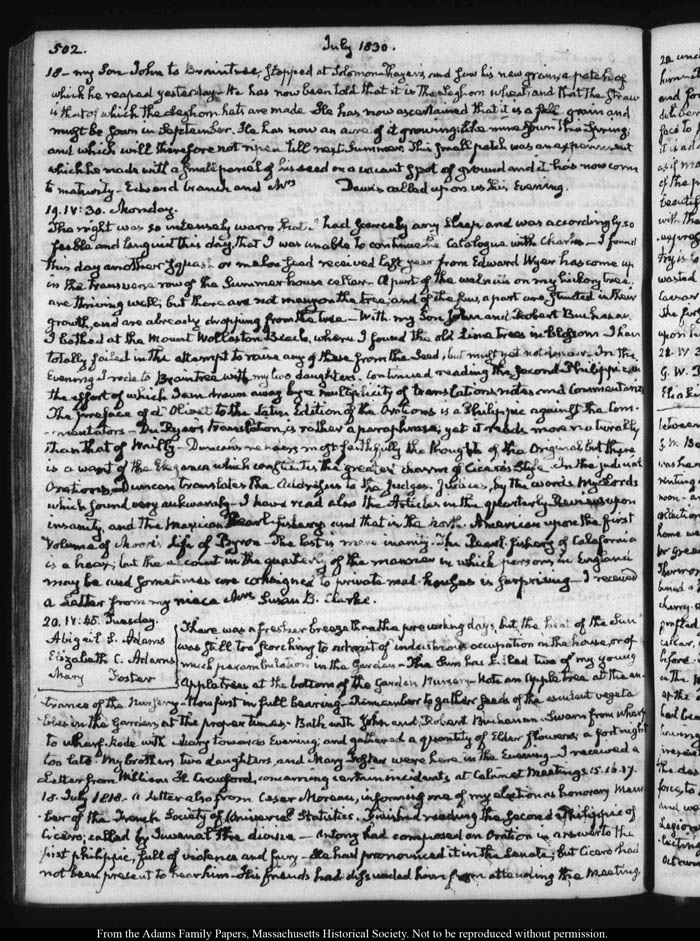 502. July 1830.
18 – my Son John to Braintree, stopped at Solomon Thayer's, and saw his new grain, a patch of
which he reaped yesterday – He has now been told that it is the Leghorn wheat, and that the straw
is that of which the Leghorn hats are made. He has now ascertained that it is a fall grain and
must be sown in September. He has now an acre of it growing, like mine sown this Spring;
and which will therefore not ripen till next Summer. This small patch was an experiment
which he made with a small parcel of his seed on a vacant spot of ground and it has now come
to maturity – Edward and Mrs Dawes called upon us this Evening.
19. IV: 30. Monday.
The night was so intensely warm that I had scarcely any sleep and was accordingly so
feeble and languid this day, that I was unable to continue the Catalogue with Charles – I found
this day another Squash or melon seed received last year from Edward Wyer has come up
in the transverse row of the Summer house cellar. A part of the walnuts on my hickory tree,
are thriving well; but there are not many on the tree; and of the few, a part are stunted in their
growth, and are already dropping from the tree – With my Son John and Robert Buchanan
I bathed at the Mount Wollaston Beach, where I found the old Lime trees in blossom – I have
totally failed in the attempt to raise any of these from the Seed, but must yet not despair. In the
Evening I rode to Braintree with my two daughters. Continued reading the second Philippic in
the effort of which I am drawn away by a multiplicity of translations notes and Commentaries
The preface of d'Olivet to the Latin Edition of the Orations is a Philippic against the Com-
mentators – Du Ryer's translation, is rather a paraphrase; yet it reads more naturally
than that of Wailly – Duncan renders most faithfully the thoughts of the Original but there
is a want of the Elegance which constitutes the greatest charm of Cicero's Style – In the judicial
Orations, Duncan translates the Address to the Judges. Judices, by the words My Lords
which sound very awkwardly – I have read also the Articles in the quarterly Review upon
insanity, and the Mexican Pearl-fishery and that in the North American upon the first
Volume of Moore's life of Byron – The last is mere inanity – The Pearl fishery of California
is a hoax; but the account in the quarterly of the manner in which persons in England
may be and sometimes are consigned to private mad-houses is surprising – I received
a Letter from my niece Mrs Susan B. Clarke.
20. IV: 45. Tuesday. There was a fresher breeze than the preceding days, but the heat of the Sun
Abigail S. Adams was still too scorching to admit of industrious occupation in the house, or of
Elizabeth C. Adams much perambulation in the Garden – The Sun has killed two of my young
Mary Foster Apple trees at the bottom of the Garden Nursery – Note an Apple tree at the en-
trance of the Nursery – thus first in full bearing – Remember to gather seeds of the esculent vegeta-
bles in the Garden at the proper times – Bath with John and Robert Buchanan. Swam from wharf
to wharf. Rode with Mary towards Evening; and gathered a quantity of Elder flowers; a fortnight
too late. My brother's two daughters, and Mary Foster were here in the Evening – I received a
Letter from William H. Crawford, concerning certain incidents, at Cabinet Meetings 15. 16. 17.
18. July 1818. a Letter also from Cesar Moreau, informing me of my election as honorary Mem-
ber of the French Society of Universal Statistics. Finished reading the second Philippic of
Cicero; called by Juvenal the divine – Antony had composed an Oration in answer to the
first philippic, full of violence and fury – He had pronounced it in the Senate; but Cicero had
not been present to hear him – His friends had dissuaded him from attending the meeting,
From the Adams Family Papers, Massachusetts Historical Society. Not to be reproduced without permission.